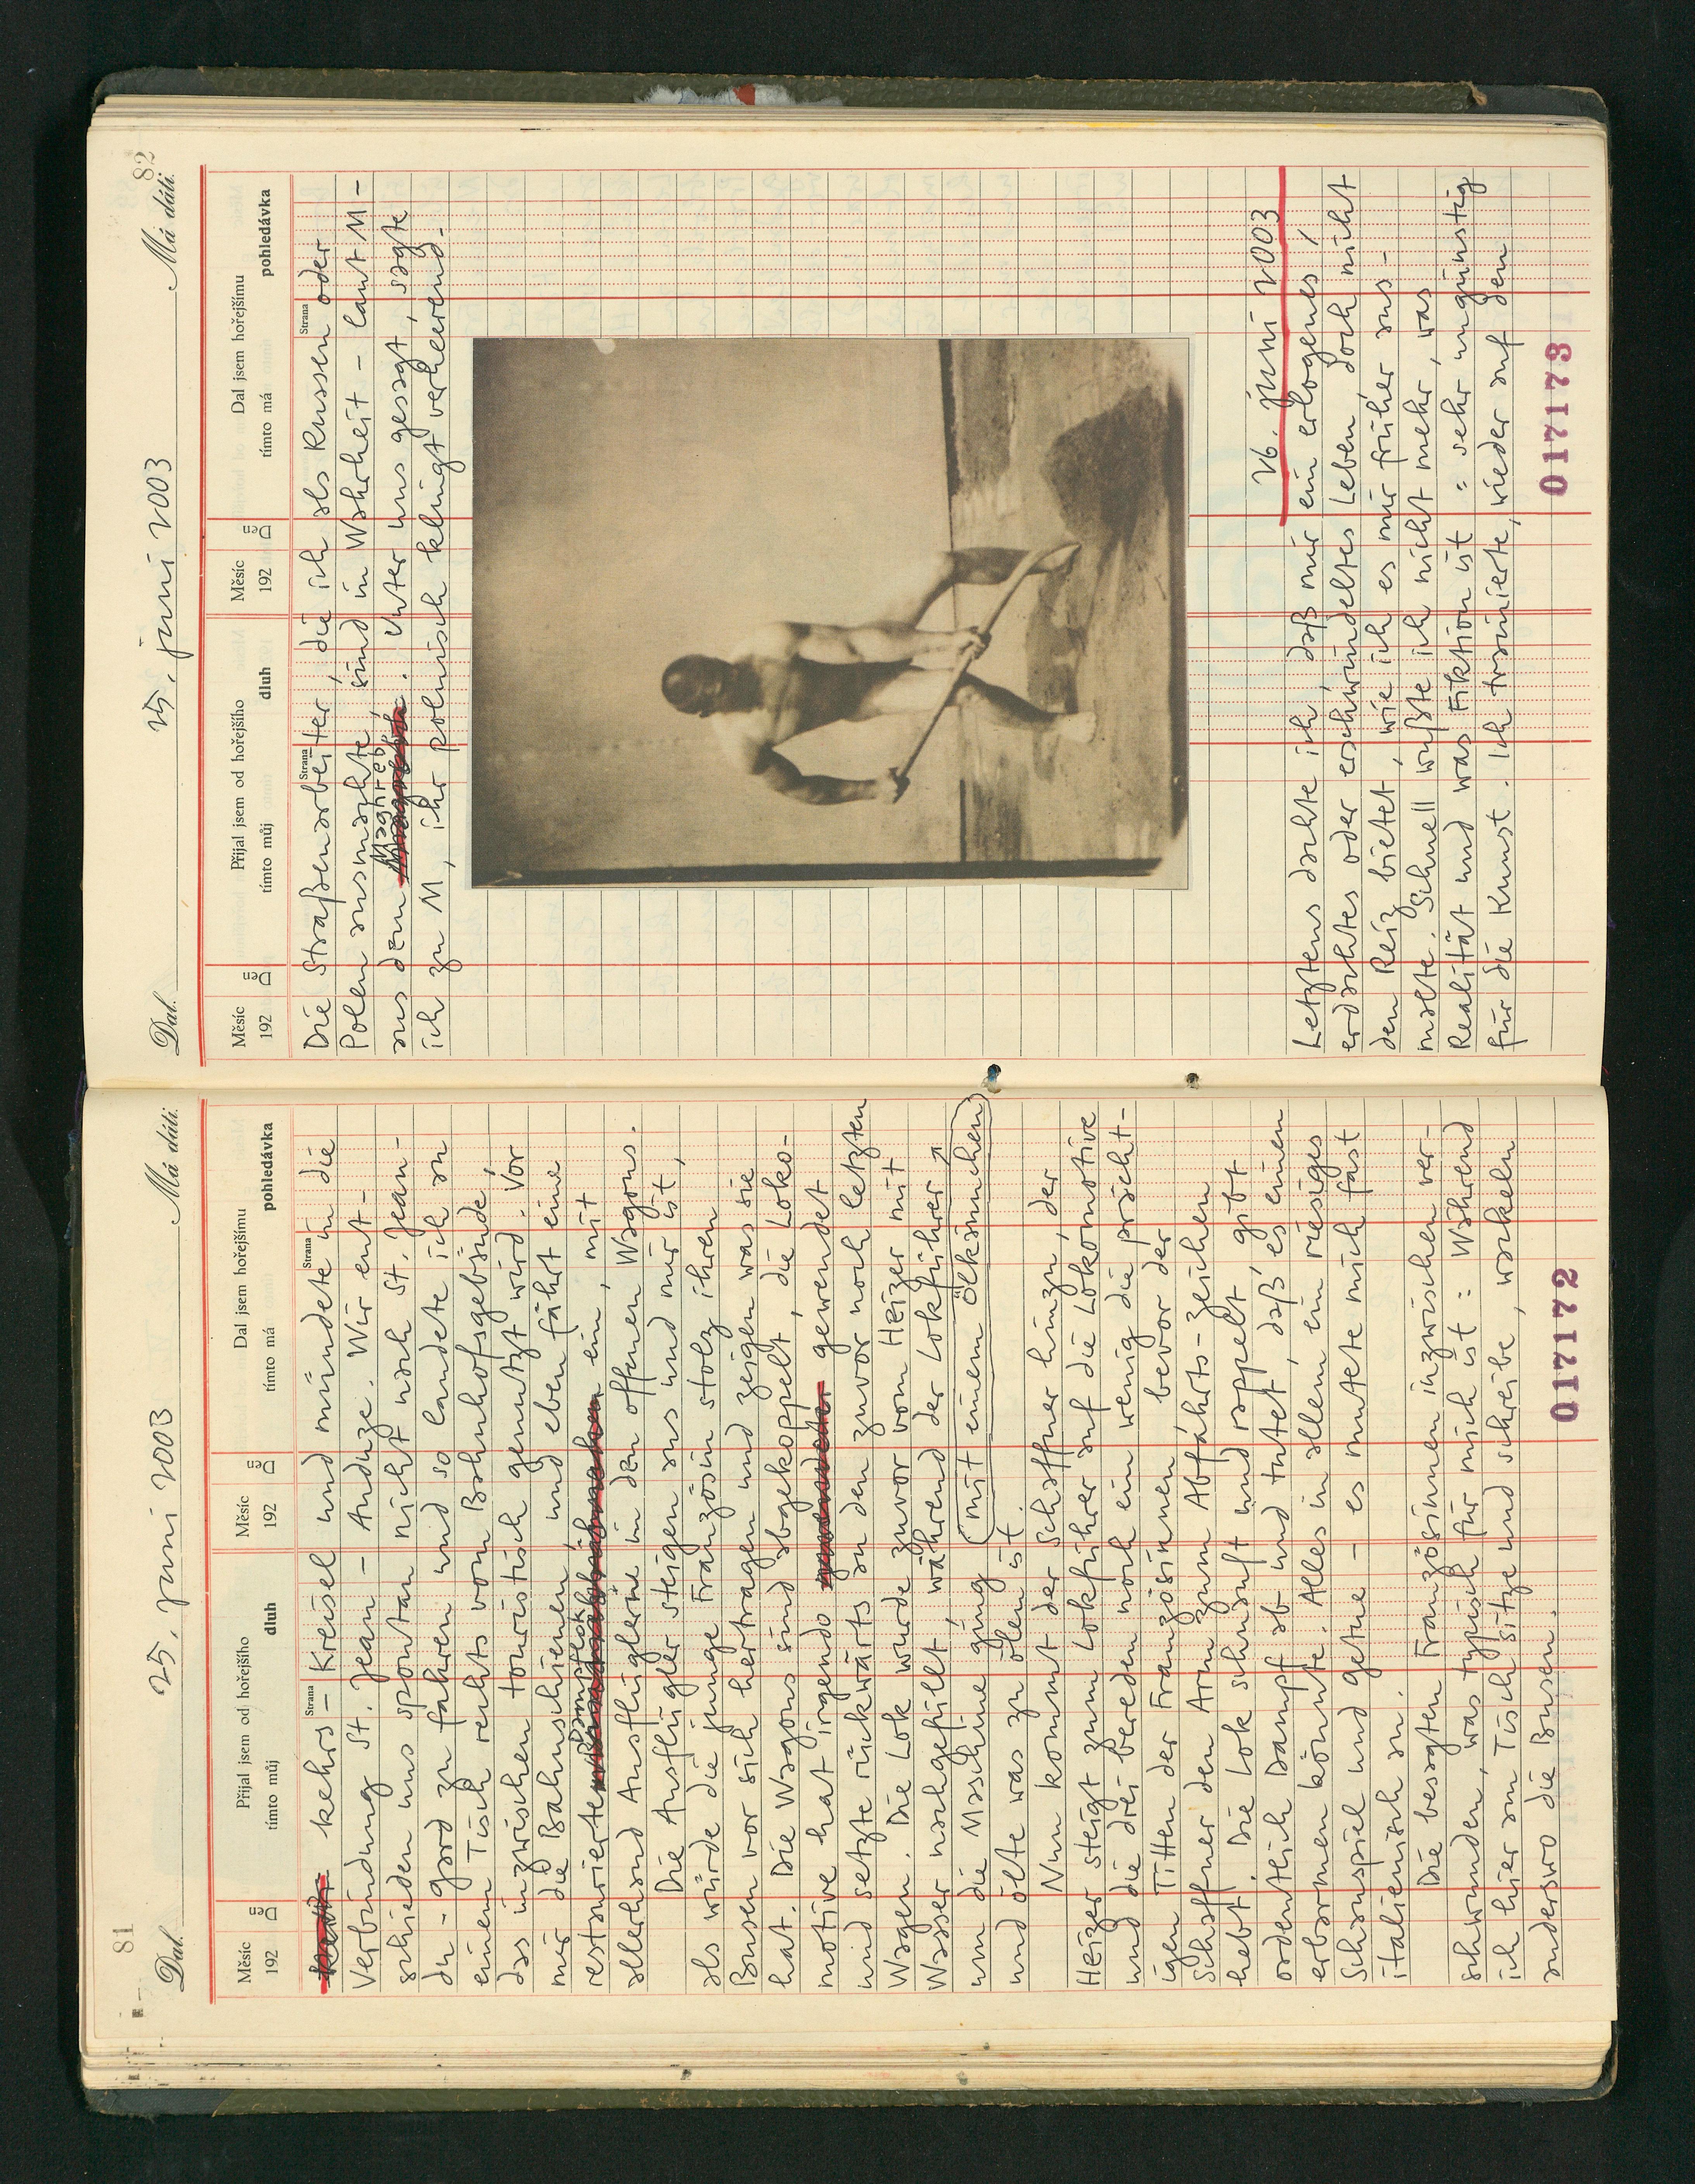 81
Dal. 25. juni 2003 Má dáti.
Měsíc Den Přijal jsem od hořejšího Měsíc Den Dal jsem hořejšímu
192 tímto můj dluh 192 tímto má pohledávka
Strana Strana
kehrs-Kreisel und mündete in die
Verbindung St. Jean - Anduze. Wir ent-
schieden uns spontan nicht nach St. Jean-
du-Gard zu fahren und so landete ich an
einem Tisch rechts vom Bahnhofsgebäude,
das inzwischen touristisch genutzt wird. Vor
mir die Bahnschienen, und eben fährt eine
restaurierte Dampflok ein, mit
allerhand Ausflüglern in den offenen Wagons.
Die Ausflügler steigen aus und mir ist,
als würde die junge Französin stolz ihren
Busen vor sich hertragen und zeigen was sie
hat. Die Wagons sind abgekoppelt, die Loko-
motive hat irgendwo gewendet
und setzte rückwärts an den zuvor noch letzten
Wagen. Die Lok wurde zuvor vom Heizer mit
Wasser nachgefüllt, während der Lokführer
um die Maschine ging (mit einem Ölkännchen)
und ölte was zu ölen ist.
Nun kommt der Schaffner hinzu, der
Heizer steigt zum Lokführer auf die Lokomotive
und die drei bereden noch ein wenig die prächt-
igen Titten der Französinnen, bevor der
Schaffner den Arm zum Abfahrts-zeichen
hebt. Die Lok schnauft und rappelt, gibt
ordentlich Dampf ab und tutet, daß es einen
erbarmen könnte. Alles in allem ein riesiges
Schauspiel und getue - es mutete mich fast
italienisch an.
Die besagten Französinnen inzwischen ver-
schwunden, was typisch für mich ist: Während
ich hier am Tisch sitze und schreibe, wackeln
anderswo die Busen.
017172
82
Dal. 25. juni 2003 Má dáti.
Měsíc Den Přijal jsem od hořejšího Měsíc Den Dal jsem hořejšímu
192 tímto můj dluh 192 tímto má pohledávka
Strana Strana
Die Straßenarbeiter, die ich als Russen oder
Polen ausmachte, sind in Wahrheit - laut M -
aus dem Maghreb. Unter uns gesagt, sagte
ich zu M, ihr polnisch klingt verheerend.
26. juni 2003
Letztens dachte ich, daß mir ein erlogenes,
erdachtes oder erschwindeltes Leben, doch nicht
den Reiz bietet, wie ich es mir früher aus-
malte. Schnell wußte ich nicht mehr, was
Realität und was Fiktion ist = sehr ungünstig
für die Kunst. Ich trainierte, wieder auf den
017173